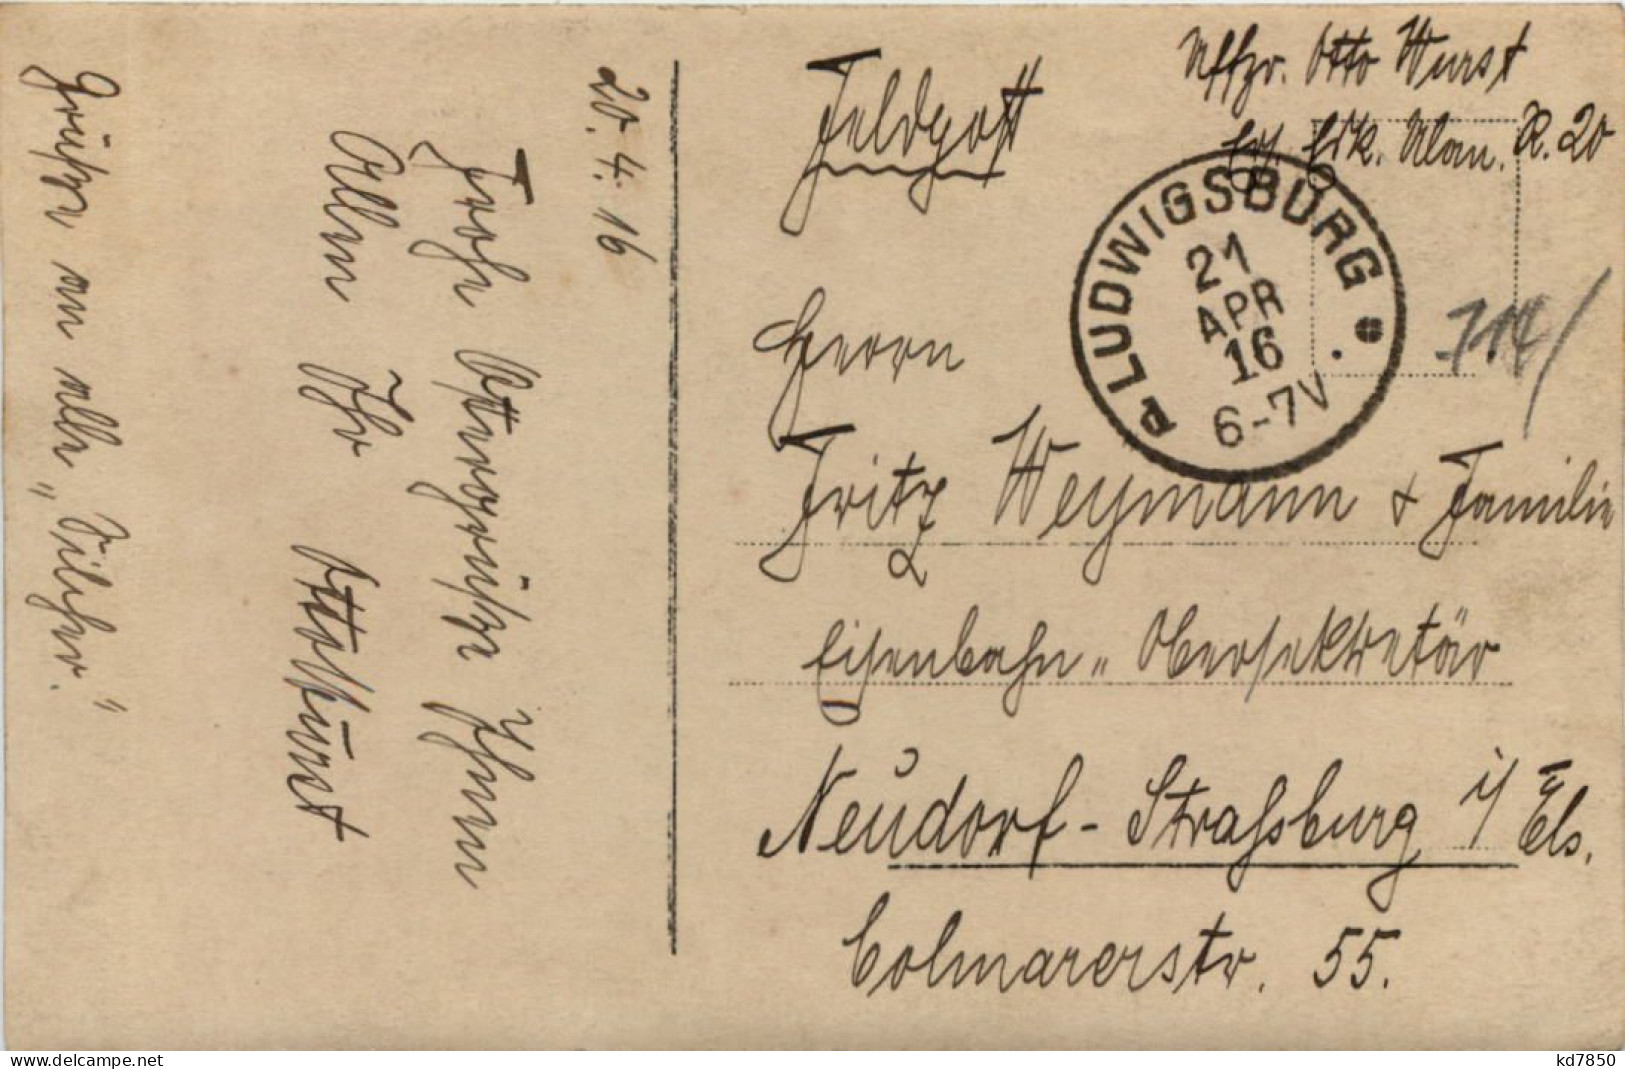 20. 4. 16
Frohe Ostergrüße Ihnen
Allen Ihr Otto Wurst
Grüßen an alle
Feldpost
Uffzr. Otto Wurst
Esk. Ulan. R. 20
LUDWIGSBURG
21
APR
16
6-7V
Herrn
Fritz Weymann & Familie
Eisenbahn„ Obersekretär
Neudorf - Strassburg i/ Els.
Colmarerstr. 55.
delcampe.net
kd7850